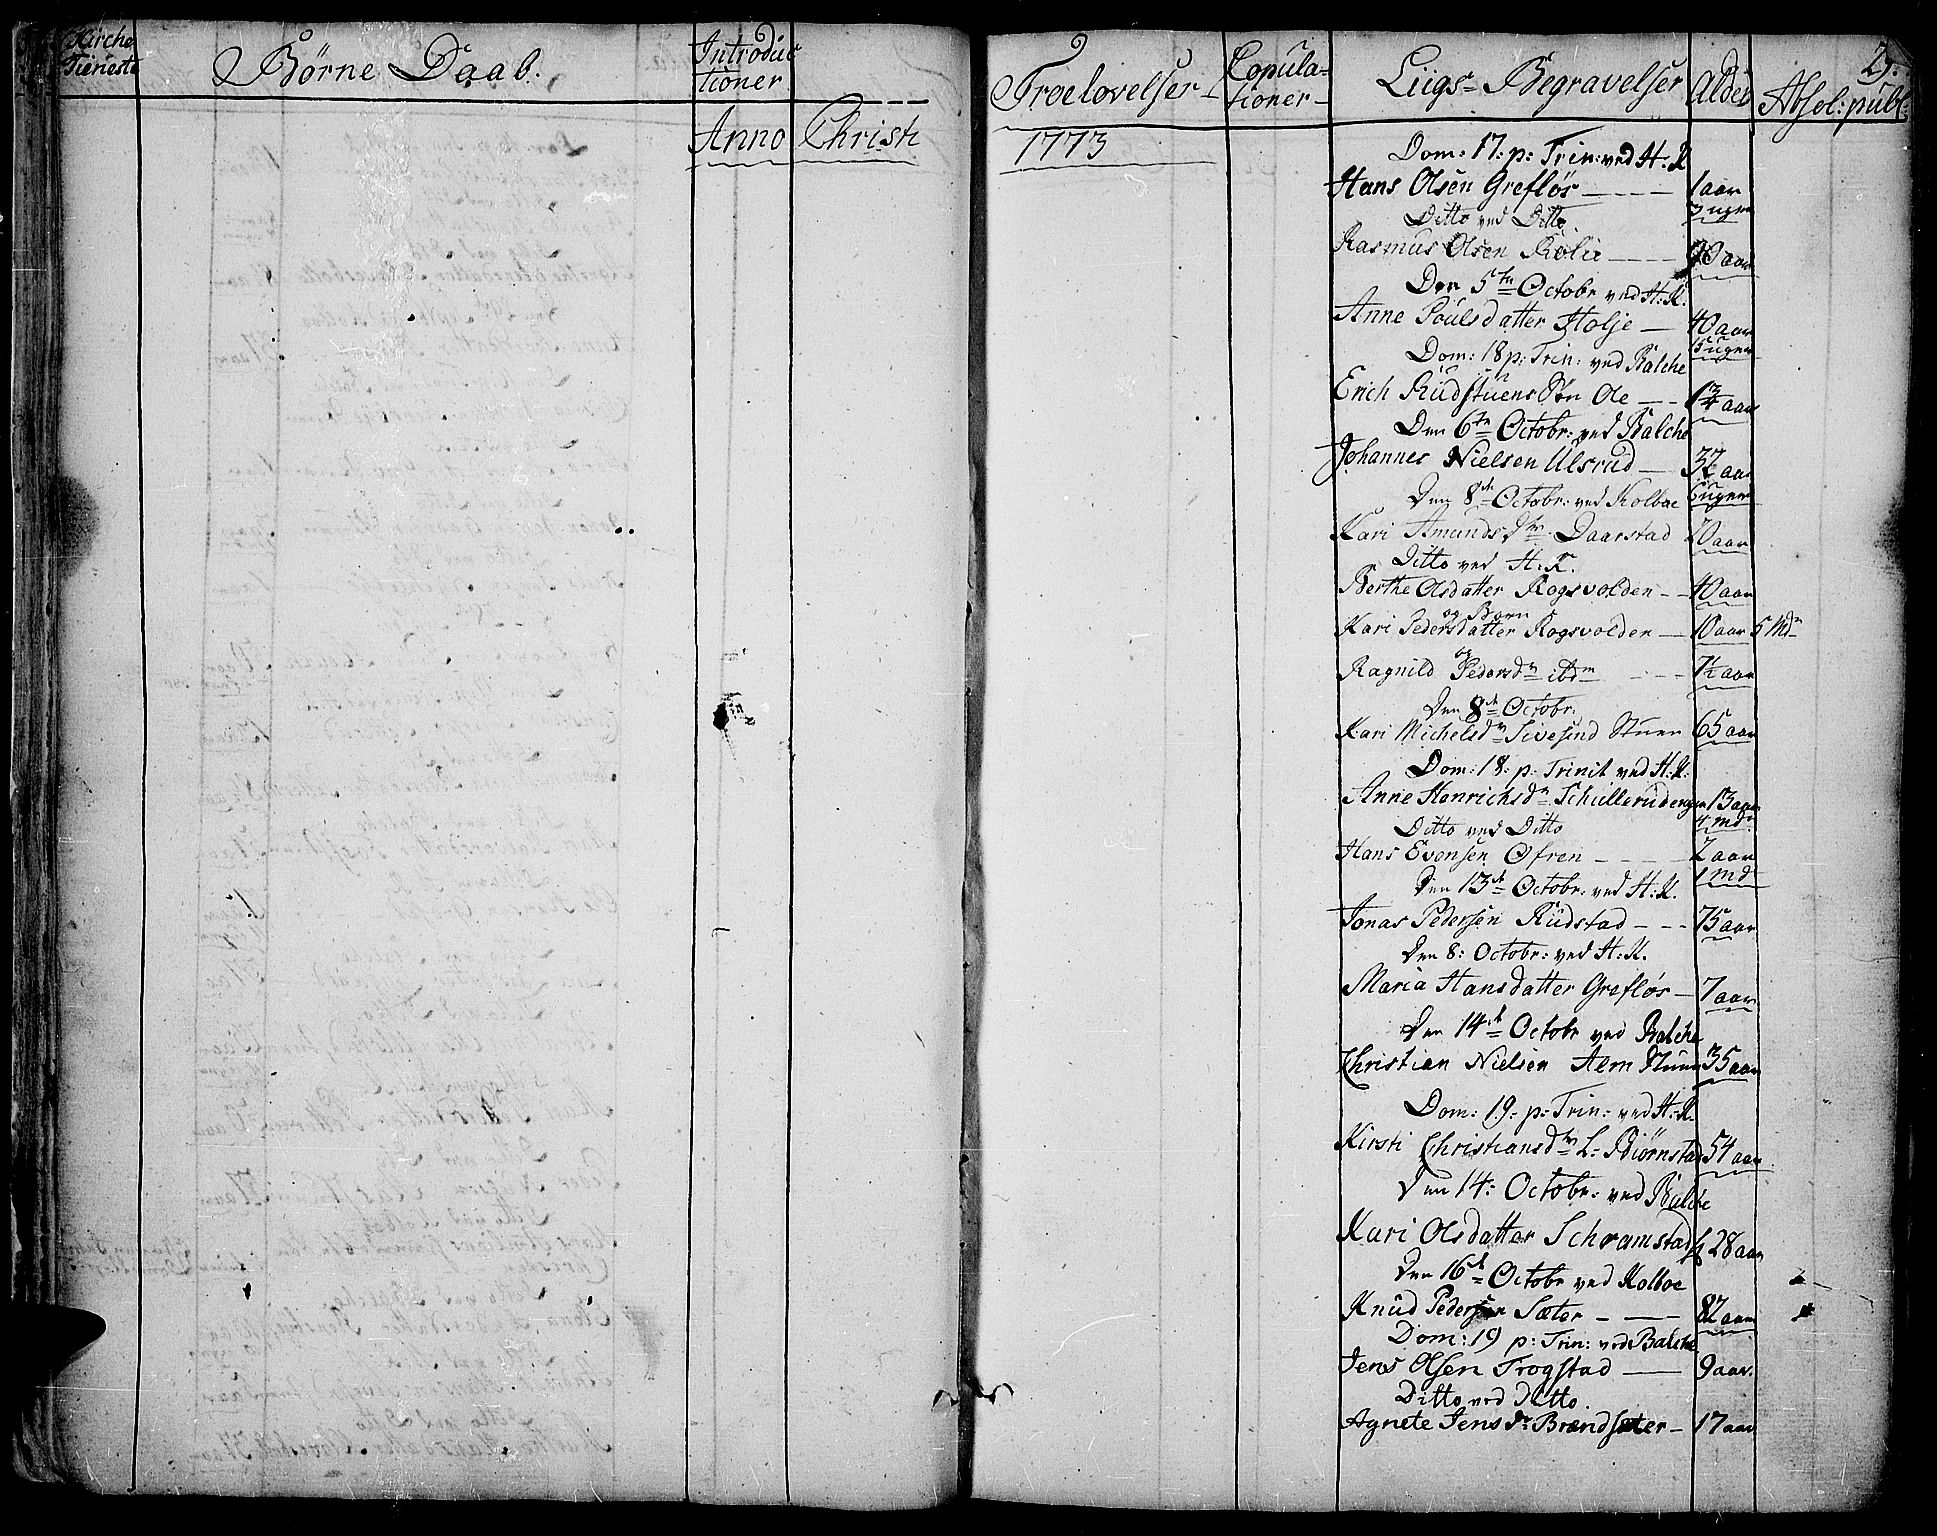 Kirche Tieneste
Børne Daab.
Introduc tioner
Anno Christi
Troelovelser
Copula= tioner
Liigs= Begravelser
Alder
Absol: publ:
1773
Dom: 17: p: Trin: ved H: K
Hans Olsen Grefløs — 1 aar 3 uger
Ditto ved Ditto.
Rasmus Olsen — aar
Den 5te Octobr ved H: K:
Anne Poulsdatter Holje — 40 aar 15 uger
Dom: 18 p: Trin: ved Balche
Erich Rudstuens Søn Ole — 1 3/4 aar
Den 6te Octobr: ved Balche
Johannes Nielsen Ulsrud — 32 aar 6 uger
Den 8de Octobr: ved Kolboe
Kari Amundsdtr Daarstad 20 aar
Ditto ved H: K.
Berthe Olsdatter Rogsvolden — 40 aar
og Børn
Kari Pedersdatter Rogsvolden — 10 aar 5 Mdr
og
Ragnild Pedersdr ibdm — 7 1/2 aar
Den 8de Octobr.
Kari Michelsdr Sivesind Stuen 65 aar
Dom: 18: p: Trinit ved H: K:
Anne Henrichsdr Schullerudengen 13 aar 4 mdr
Ditto ved Ditto
Hans Evensen Øfren — 2 aar 1 md
Den 13de Octobr: ved H: K.
Jonas Pedersen Rudstad — 75 aar
Den 8: Octobr: ved H: K.
Maria Hansdatter Grefløs — 7 aar
Den 14de Octobr ved Balche
Christian Nielsen Aem Stuen 35 aar
Dom: 19: p: Trin: ved H: K
Kirsti Christiansdtr L: Biørnstad 54 aar
Den 14: Octobr: ved Balche
Kari Olsdatter Schramstad 28 aar
Den 16de Octobr ved Kolboe
Knud Pedersen Sæter — 82 aar
Dom: 19 p: Trin: ved Balche
Jens Olsen Trogstad — 9 aar.
Ditto ved Ditto.
Agnete Jensdr Brændsæter — 17 aar